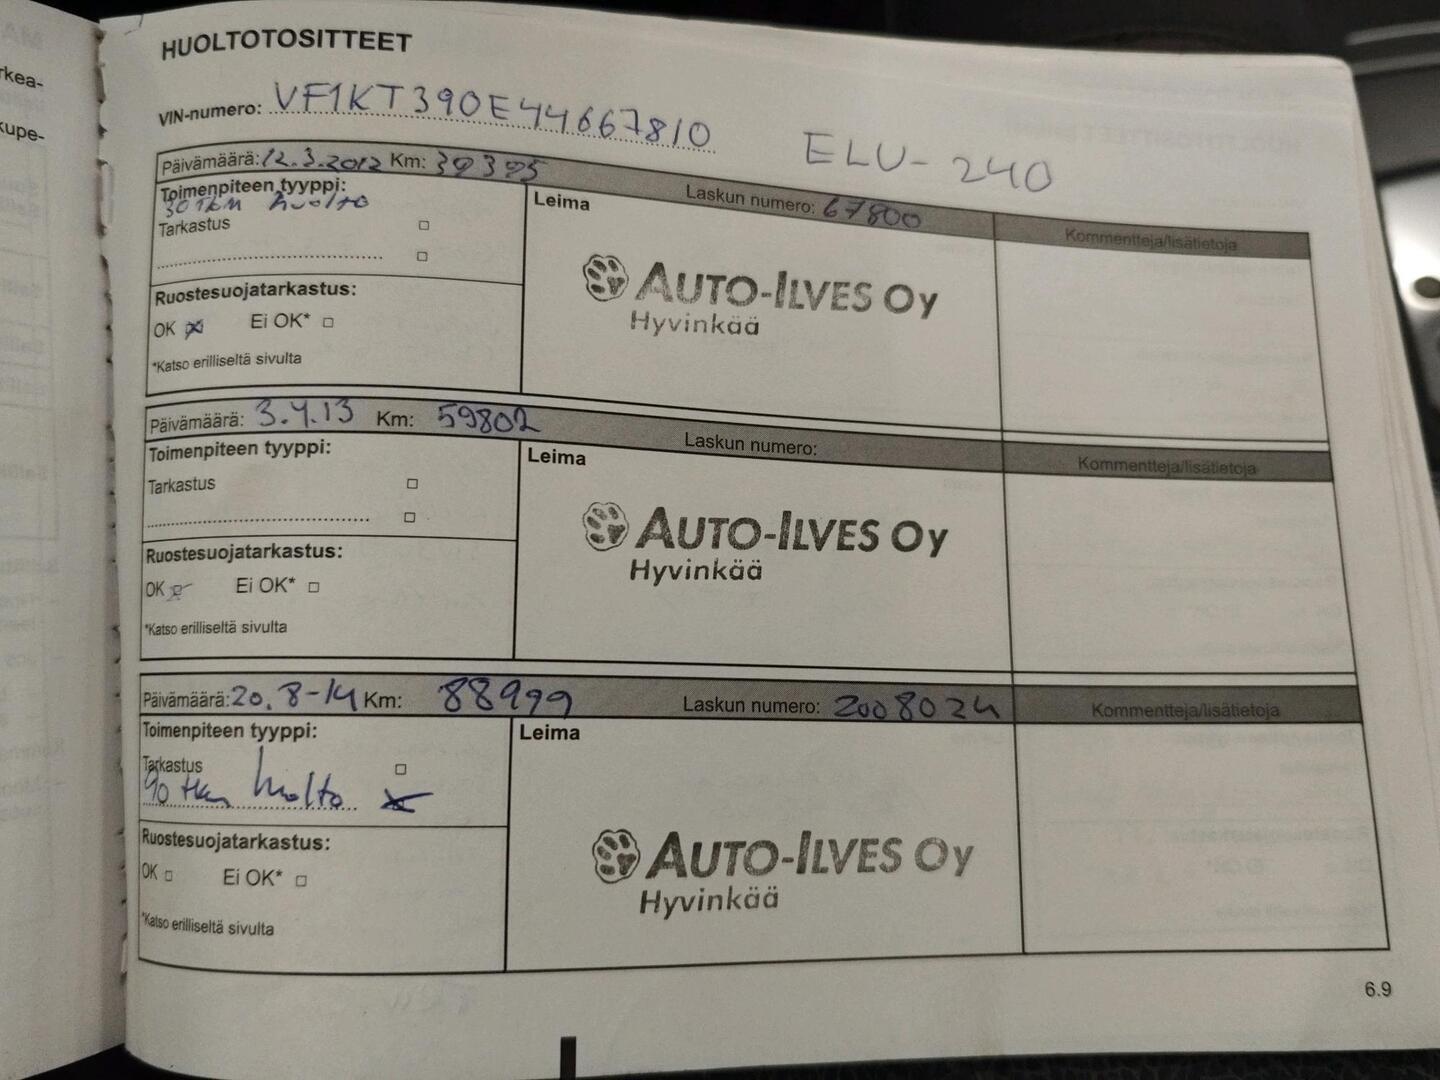 HUOLTOTOSITTEET
VIN-numero: VF1KT390E44667810
ELU-240
Päivämäärä: 12.3.2012 Km: 39395 Laskun numero: 67800
Toimenpiteen tyyppi:
30 tkm huolto
Tarkastus
Ruostesuojatarkastus:
OK Ei OK*
*Katso erilliseltä sivulta
Leima
AUTO-ILVES OY
Hyvinkää
Kommentteja/lisätietoja
Päivämäärä: 3.4.13 Km: 59802 Laskun numero:
Toimenpiteen tyyppi:
Tarkastus
Ruostesuojatarkastus:
OK Ei OK*
*Katso erilliseltä sivulta
Leima
AUTO-ILVES OY
Hyvinkää
Kommentteja/lisätietoja
Päivämäärä: 20.8-14 Km: 88999 Laskun numero: 2008024
Toimenpiteen tyyppi:
Tarkastus
90 tkm huolto
Ruostesuojatarkastus:
OK Ei OK*
*Katso erilliseltä sivulta
Leima
AUTO-ILVES OY
Hyvinkää
Kommentteja/lisätietoja
6.9